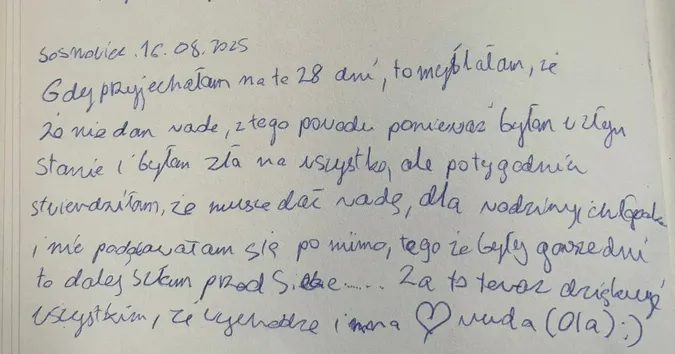 Sosnowiec. 16.08.2025
Gdy przyjechałam na te 28 dni, to myślałam, że
że nie dam rade, z tego powodu ponieważ byłam w złym
stanie i byłam zła na wszystko, ale po tygodniu
stwierdziłam, że musze dać radę, dla rodziny i chłopaka
i nie poddawałam się po mimo, tego że były gorsze dni
to dalej szłam przed Siebie..... Za to teraz dziękuję
wszystkim, że wychodze i mona ♡ ruda (Ola) ;)